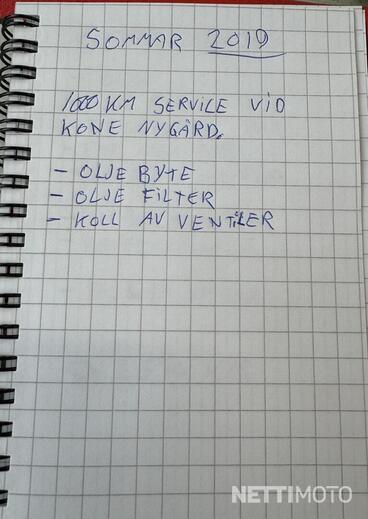 SOMMAR 2019
1000 KM SERVICE VID
KONE NYGÅRD.
- OLJE BYTE
- OLJE FILTER
- KOLL AV VENTILER
NETTIMOTO